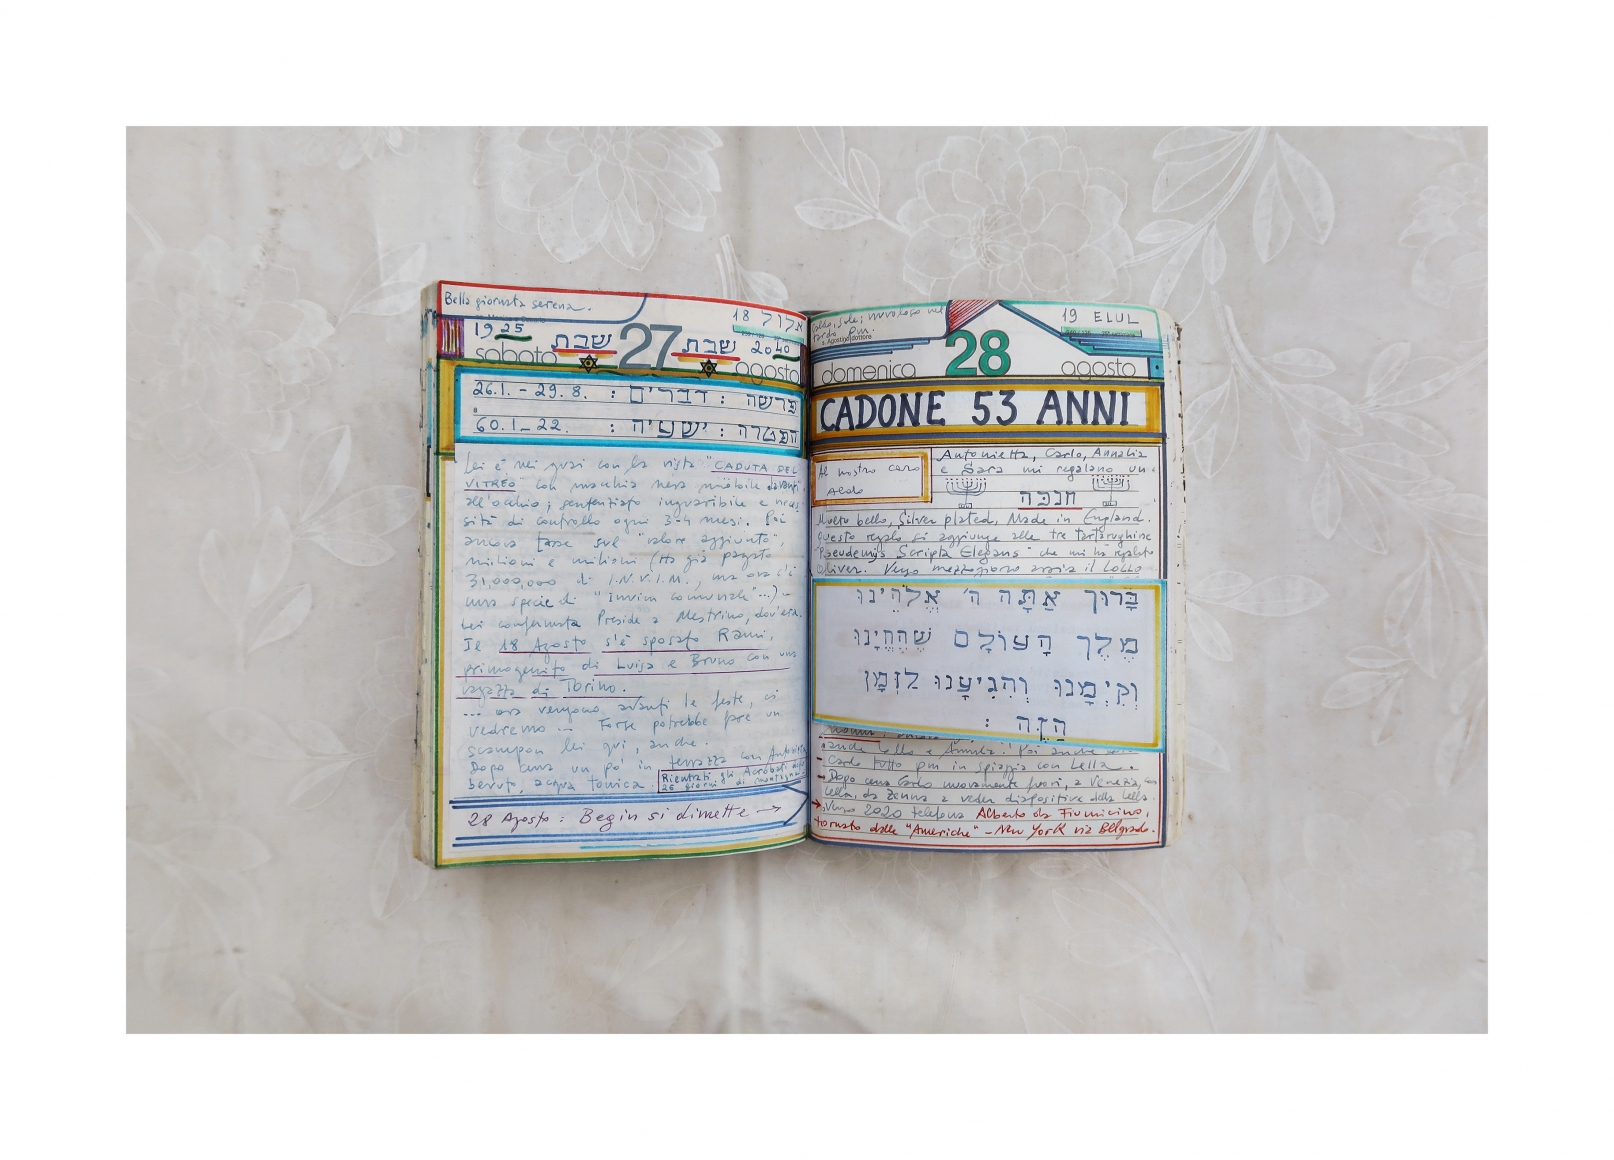 Bella giornata serena.
18 אלול
1925 שבת 27 שבת 2040
sabato agosto
פרשה : דברים : 26.1. - 29.8.
הפטרה : ישעיה : 60.1 - 22.
Lei è nei guai con la vista "CADUTA DEL
VITREO" con macchia nera mobile davanti
all'occhio; sentenziato inguaribile e neces-
sità di controllo ogni 3-4 mesi. Poi
ancora tasse sul "valore aggiunto",
milioni e milioni (Ho già pagato
31,000,000 di I.N.V.I.M., ma ora c'è
una specie di "Invim comunale"...)-
Lei confermata Preside a Mestrino, dov'era.
Il 18 Agosto s'è sposato Rami,
primogenito di Luisa e Bruno con una
ragazza di Torino.
... ora vengono avanti le feste, ci
vedremo ... Forse potrebbe fare un
scampon lei qui, anche.
Dopo cena un po' in terrazza con
bevuto, acqua tonica.
Rientrati gli Acrobati dopo
26 giorni di montagna
28 Agosto : Begin si dimette →
caldo, sole; nuvoloso nel
tardo pm.
19 ELUL
s. Agostino dottore
domenica 28 agosto
CADONE 53 ANNI
Al nostro caro
Aldo
Antonietta, Carlo, Annalia
e Sara mi regalano una
חנכה
Molto bello, Silver plated, Made in England.
Questo regalo si aggiunge alle tre tartarughine
"Pseudemys Scripta Elegans" che mi ha regalato
Oliver. Verso mezzogiorno arriva il Lollo
בָּרוּךְ אַתָּה ה' אֱלֹהֵינוּ
מֶלֶךְ הָעוֹלָם שֶׁהֶחֱיָנוּ
וְקִיְּמָנוּ וְהִגִּיעָנוּ לַזְּמַן
הַזֶּה :
anche Lollo e Poi anche
- Carlo tutto pm in spiaggia con Lella.
- Dopo cena Carlo nuovamente fuori, a Venezia, con
Lella, da Zenna a veder diapositive della Lella.
→ Verso 2020 telefona Alberto da Fiumicino,
tornato dalle "Americhe" - New York via Belgrado.